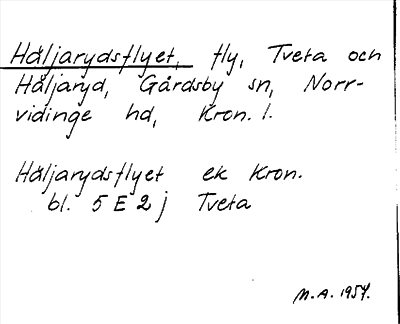 Håljarydsflyet, fly, Tveta och
Håljaryd, Gårdsby sn, Norr-
vidinge hd, Kron. l.
Håljarydsflyet ek Kron.
bl. 5 E 2 j Tveta
M.A. 1954.